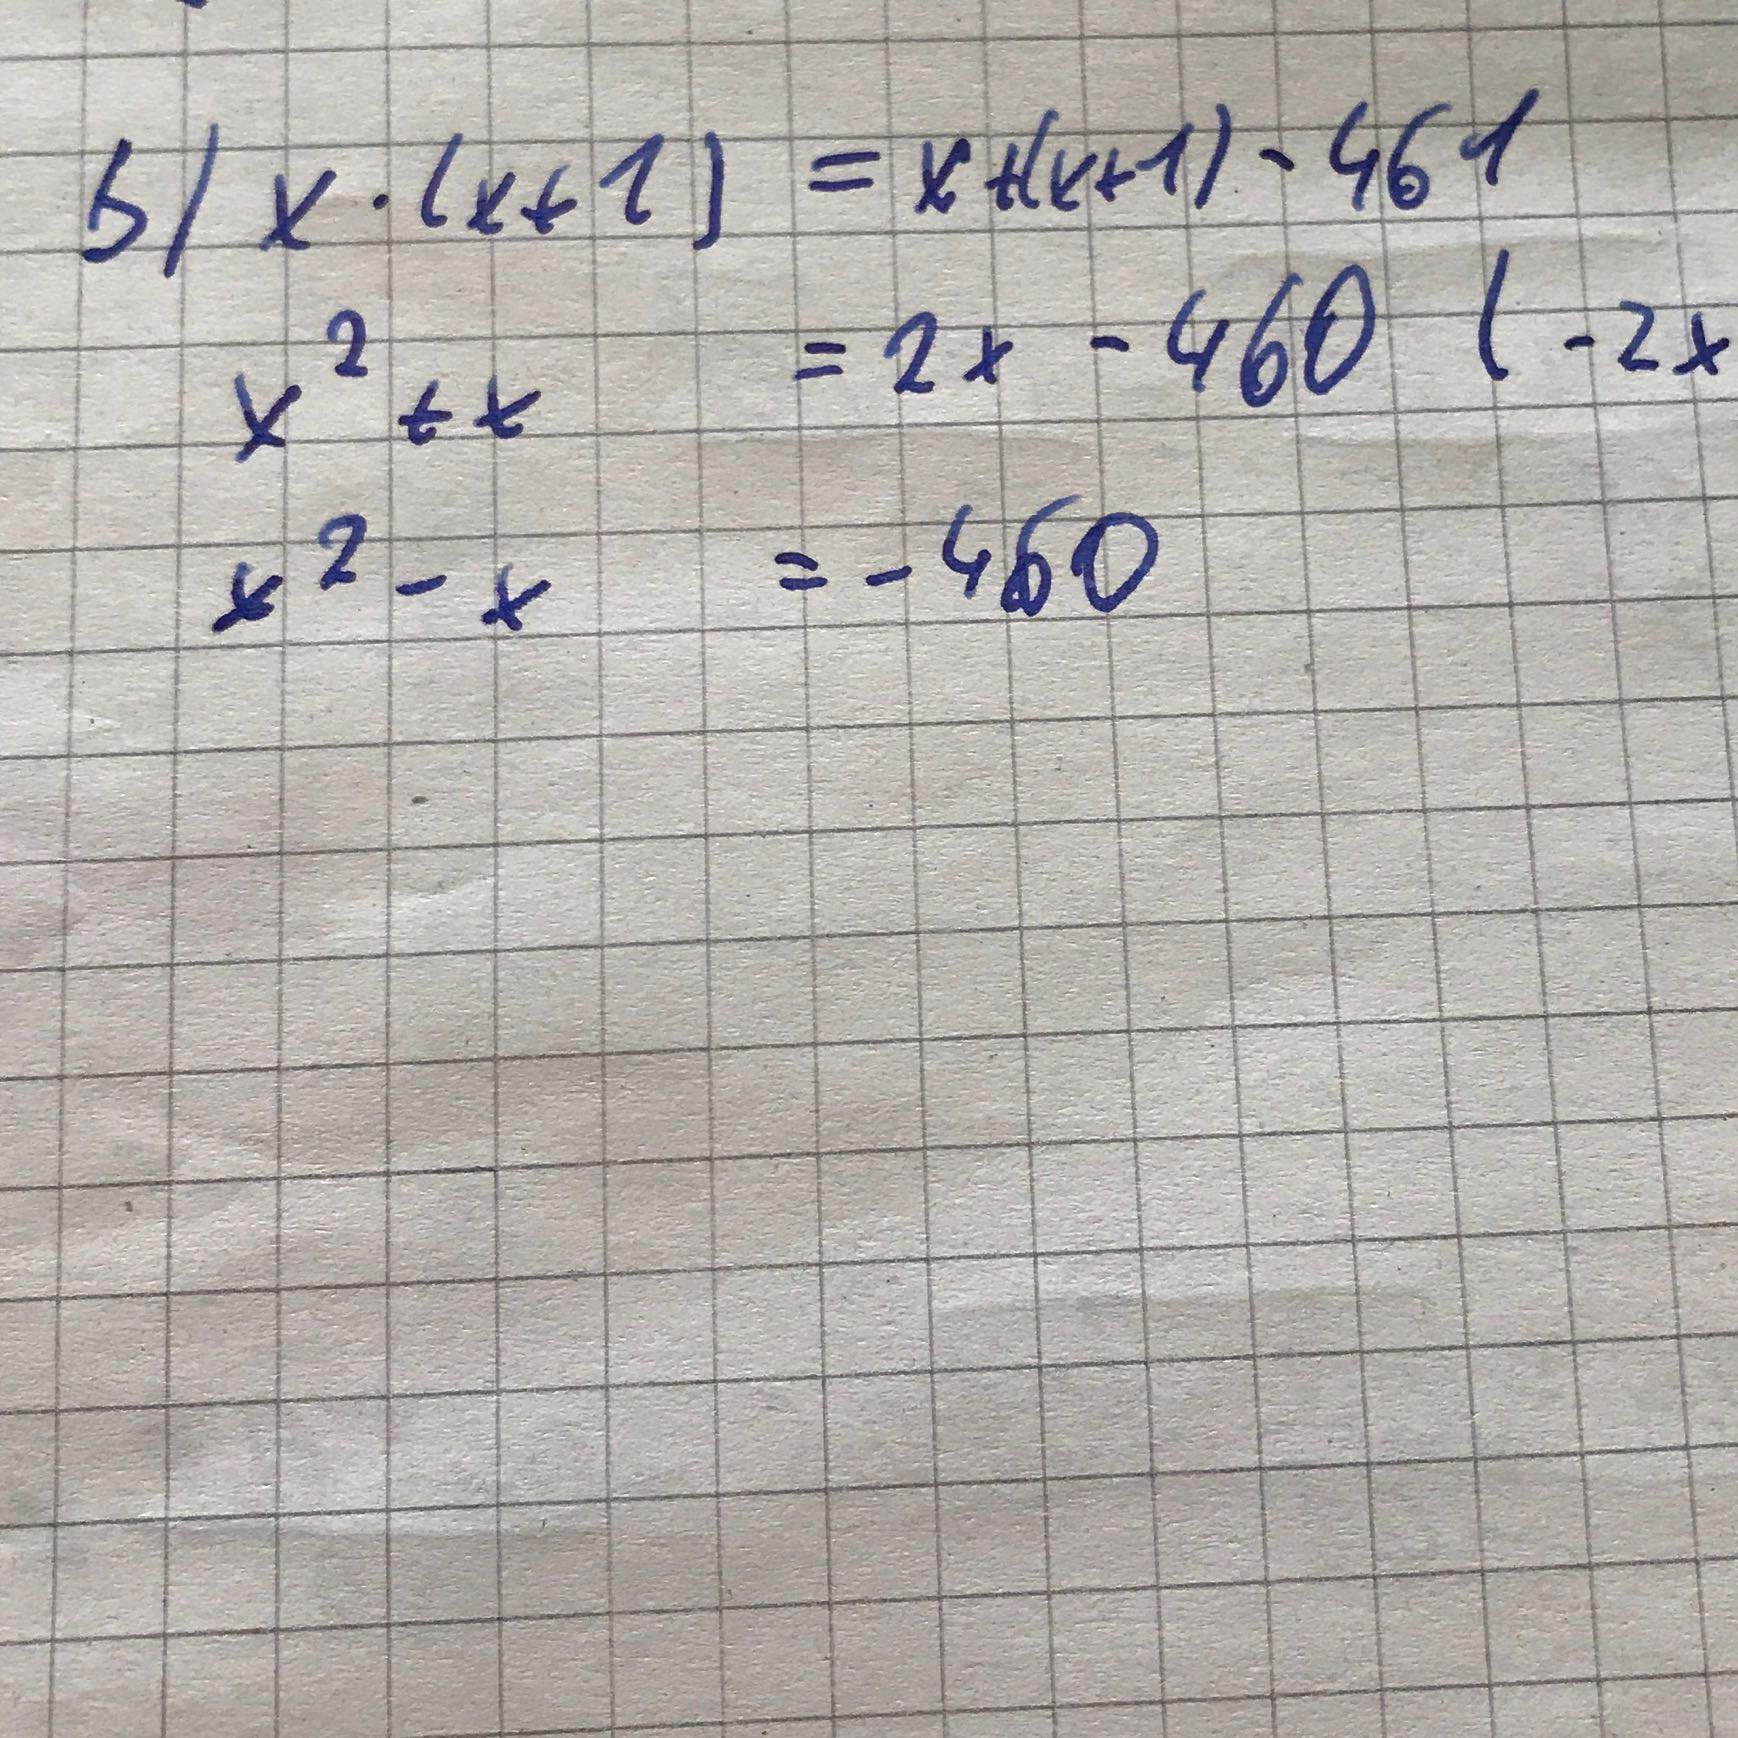 b) x · (x+1) = x+(x+1) - 461
x² + x = 2x - 460 | -2x
x² - x = -460